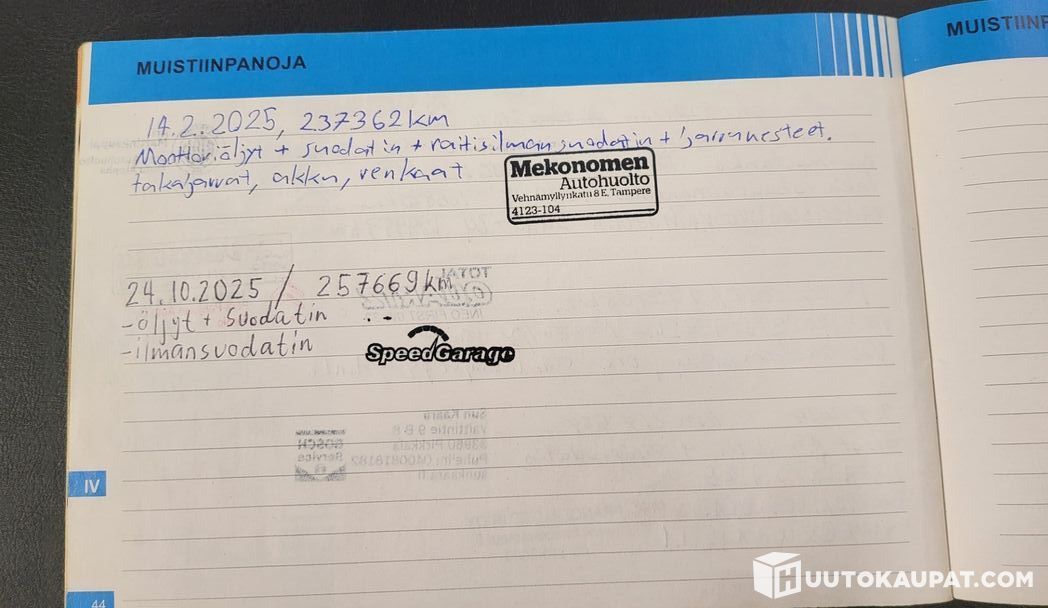 MUISTIINPANOJA
MUISTIINP
14.2.2025, 237362km
Moottoriöljyt + suodatin + raitisilmansuodatin + jarrunesteet.
takajarrut, akku, renkaat
Mekonomen
Autohuolto
Vehnämyllynkatu 8 E, Tampere
4123-104
24.10.2025 / 257669km
-öljyt + suodatin
-ilmansuodatin
SpeedGarage
TOTAL
BOSCH
Service
IV
44
HUUTOKAUPAT.COM